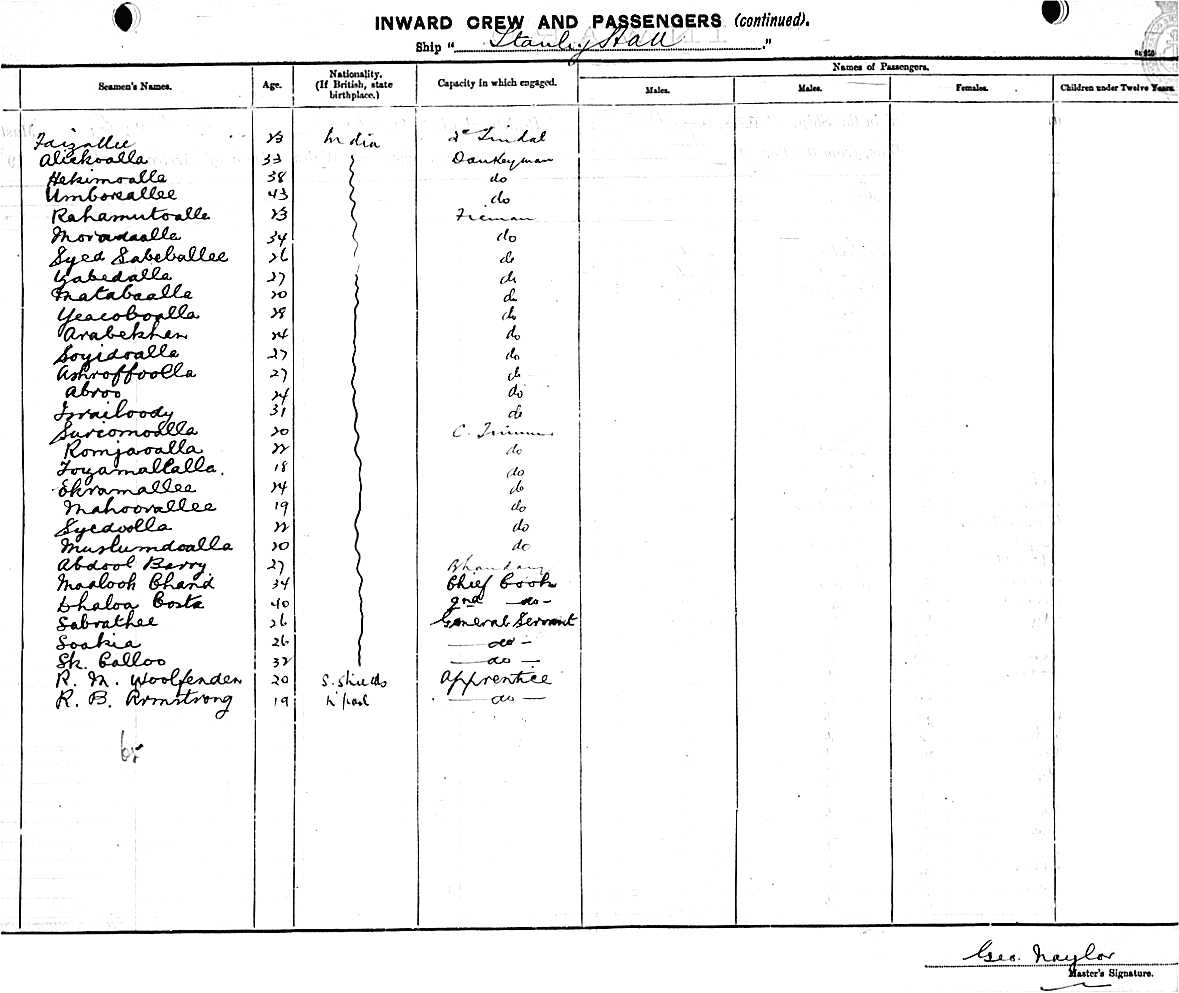 INWARD CREW AND PASSENGERS (continued).
Ship "Stanley Hall."
Seamen's Names. Age. Nationality. (If British, state birthplace.) Capacity in which engaged. Names of Passengers.
Males. Males. Females. Children under Twelve Years.
Faizallee 23 India 2e Tindal
Alickoalla 33 Donkeyman
Hekimoalla 38 do
Umboreallee 43 do
Rahamutoalle 23 Fireman
Moradaalle 34 do
Syed Sabeballee 26 do
Yabedalla 27 do
Matabaalla 20 do
Yeacoboalla 28 do
Arabekhan 24 do
Soyidoalla 27 do
Ashroffoolla 27 do
Abroo 24 do
Israiloody 31 do
Surcomodlla 20 C. Trimmer
Romjavalla 22 do
Toyamallalla. 18 do
Ekramallee 24 do
Mahoorallee 19 do
Syedoolla 22 do
Muslumdoalla 20 do
Abdool Barry 27 Bhandary
Maalook Chand 34 Chief Cook
Dhaloa Costa 40 2nd — do —
Sabrathee 26 General Servant
Soakia 26 — do —
Sk. Calloo 32 — do —
R. M. Woolfenden 20 S. Shields Apprentice
R. B. Armstrong 19 L'pool — do —
Geo. Naylor
Master's Signature.